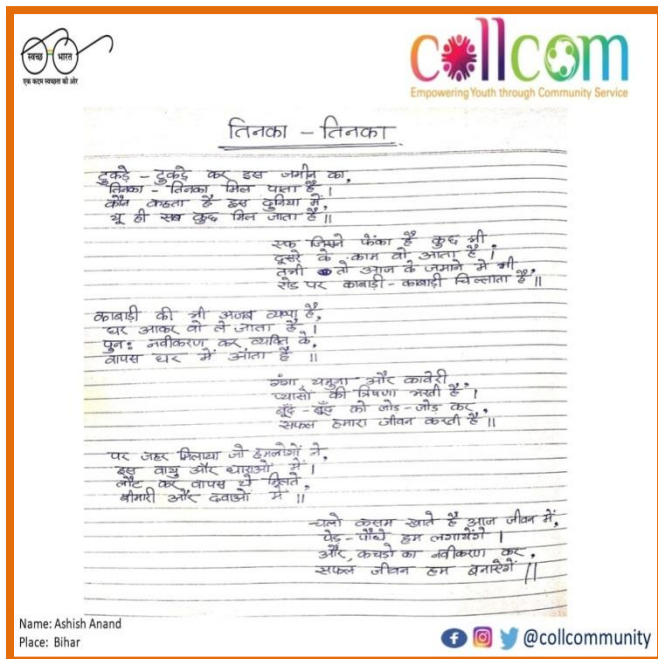 स्वच्छ भारत
एक कदम स्वच्छता की ओर
collcom
Empowering Youth through Community Service
तिनका - तिनका
टुकड़े - टुकड़े कर इस जमीन का,
तिनका - तिनका मिल पाता है।
कौन कहता है इस दुनिया में,
यू ही सब कुछ मिल जाता है॥
एक जिसने फेंका है कुछ भी
दूसरे के काम वो आता है।
तभी तो आज के जमाने मे भी,
रोड पर काबाड़ी - काबाड़ी चिल्लाता है॥
काबाड़ी की भी अजब व्यथा है,
घर आकर वो ले जाता है।
पुनः नवीकरण कर व्यक्ति के,
वापस घर में आता है॥
गंगा, यमुना और कावेरी,
प्यासो की त्रिषणा भरती है।
बूँद - बूँद को जोड़ - जोड़ कर,
सफल हमारा जीवन करती है॥
पर जहर मिलाया जो हमलोगों ने,
इस वायु और धाराओ में।
लौट कर वापस ये मिलते,
बीमारी और दवाओ में॥
चलो कसम खाते है आज जीवन में,
पेड़ - पौधे हम लगायेंगे।
और, कचडो का नवीकरण कर,
सफल जीवन हम बनाऐगें॥
Name: Ashish Anand
Place: Bihar
@collcommunity